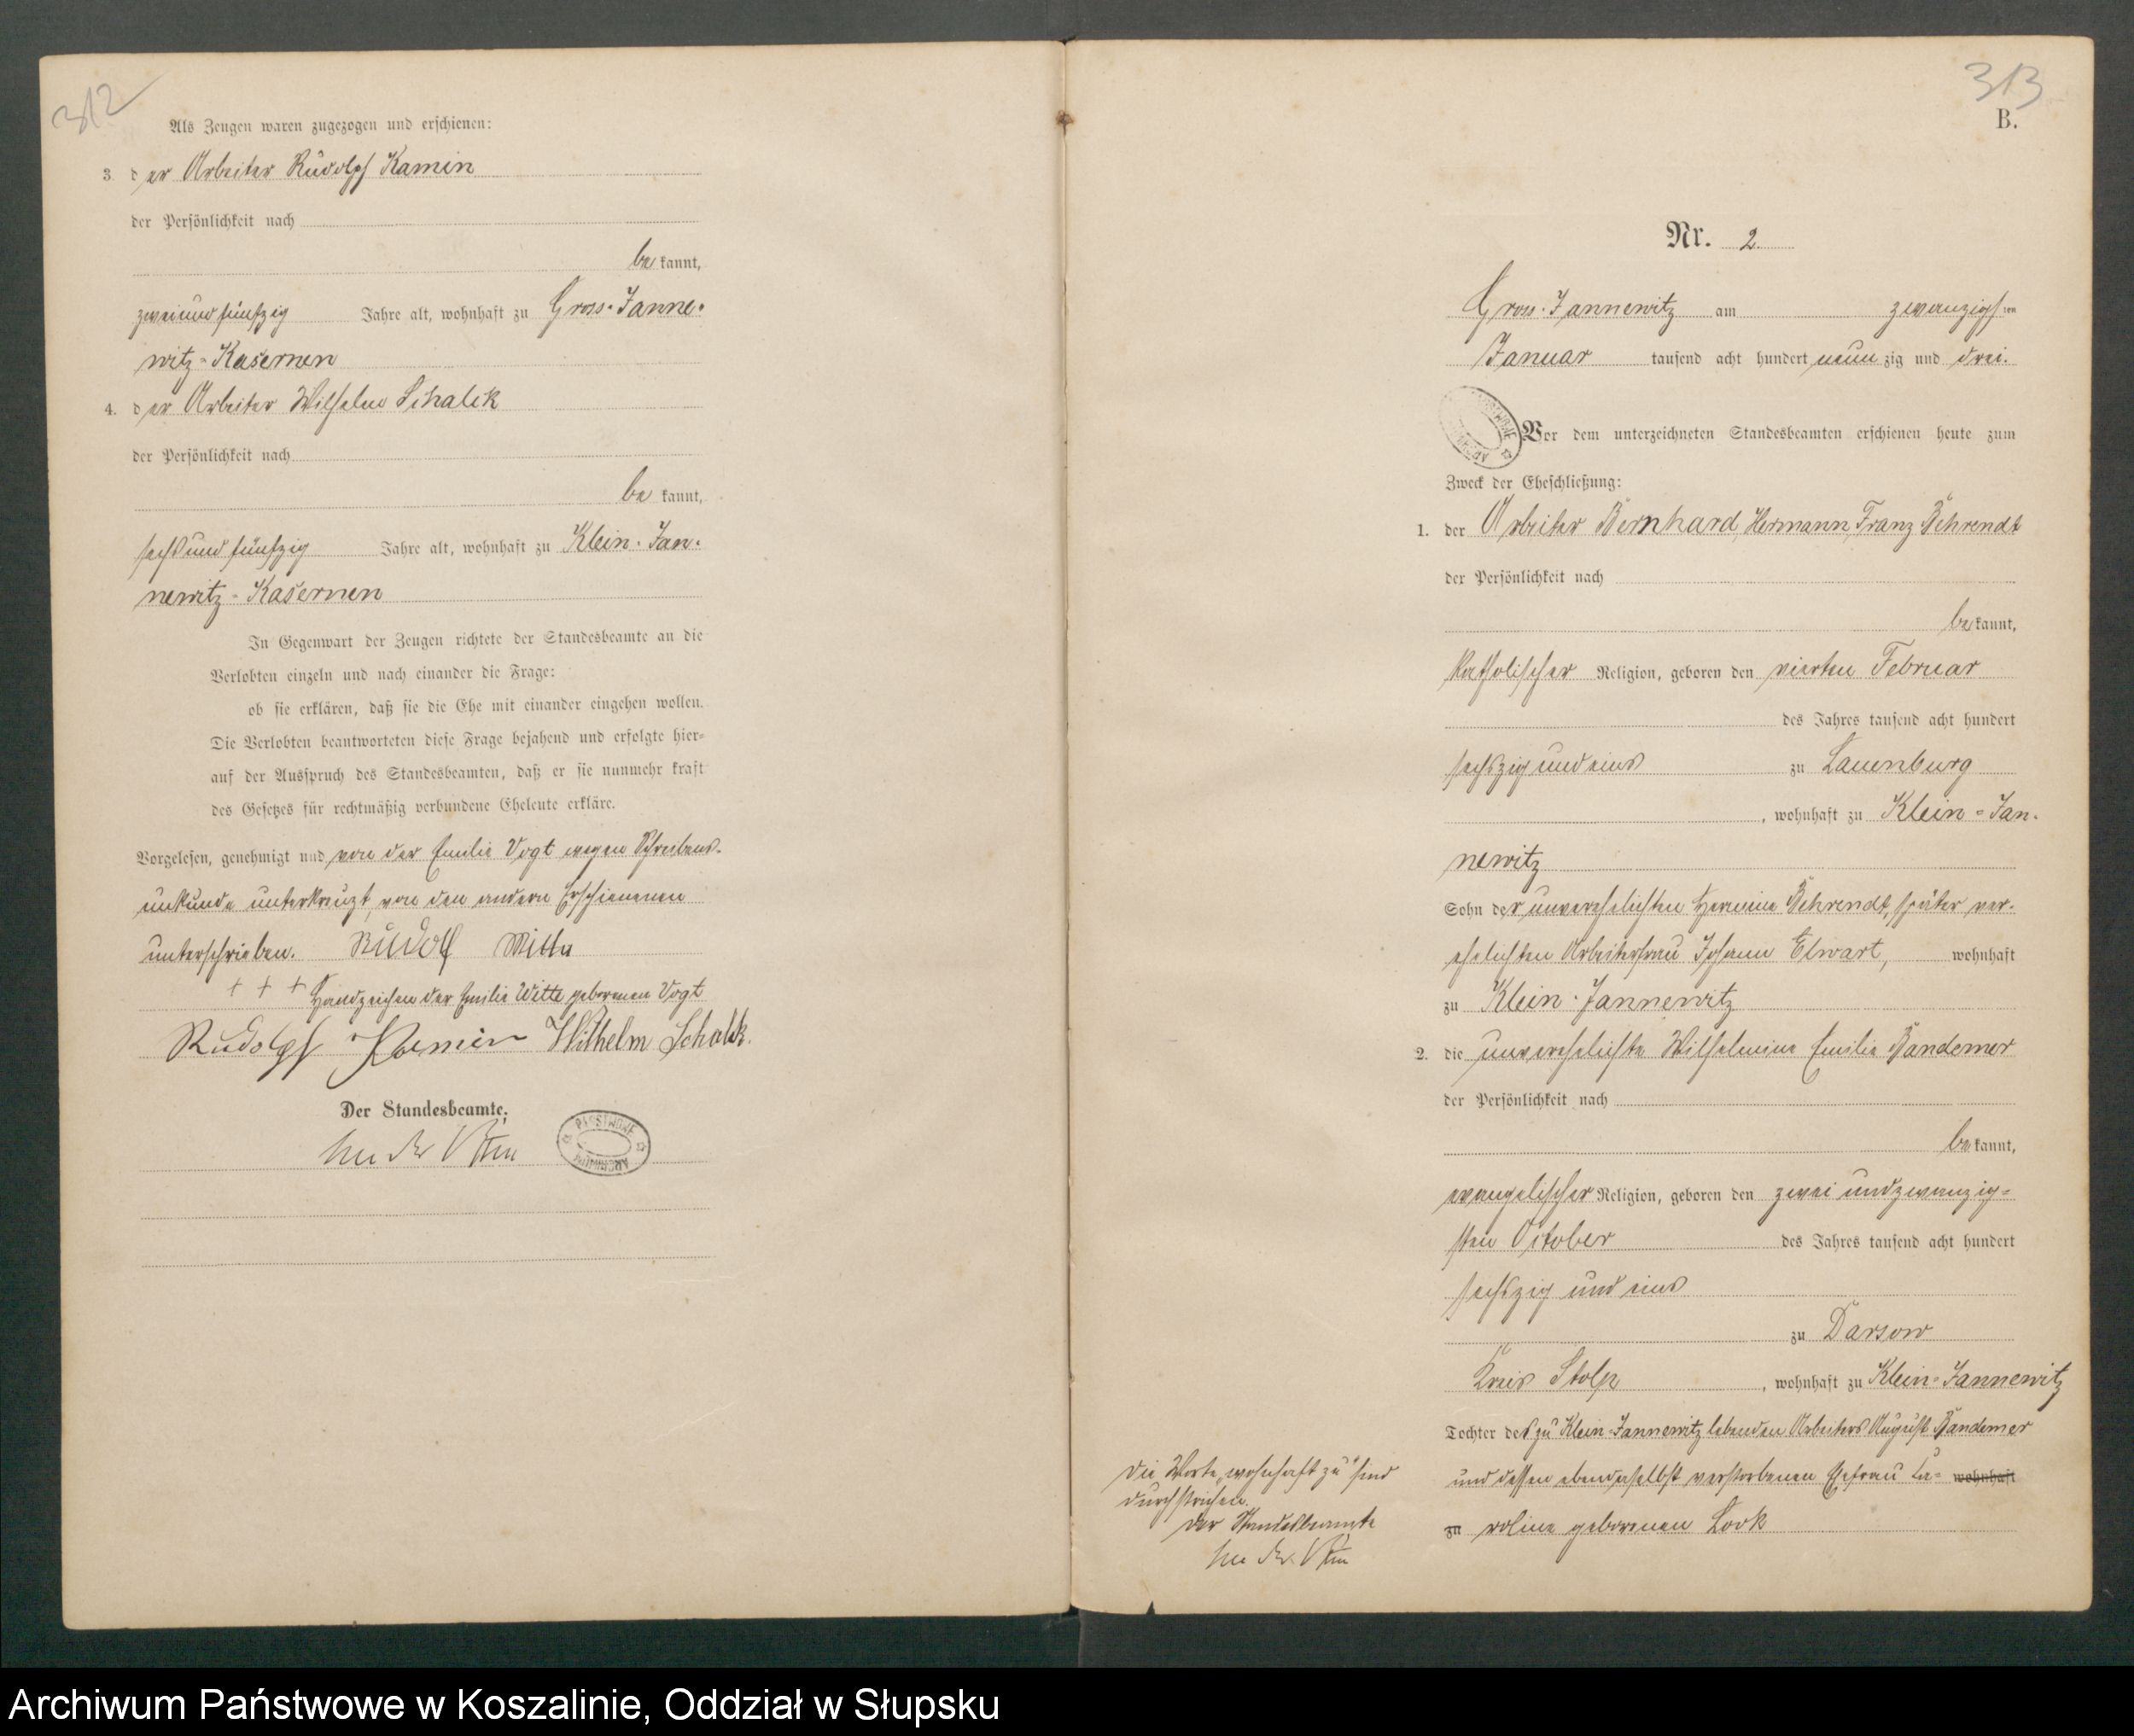 312
Als Zeugen waren zugezogen und erschienen:
3. der Arbeiter Rudolph Kamin
der Persönlichkeit nach
be kannt,
zweiundfünfzig Jahre alt, wohnhaft zu Gross-Janne-
witz-Kasernen
4. der Arbeiter Wilhelm Schalck
der Persönlichkeit nach
be kannt,
sechsundfünfzig Jahre alt, wohnhaft zu Klein-Jan-
newitz-Kasernen
In Gegenwart der Zeugen richtete der Standesbeamte an die
Verlobten einzeln und nach einander die Frage:
ob sie erklären, daß sie die Ehe mit einander eingehen wollen.
Die Verlobten beantworteten diese Frage bejahend und erfolgte hier-
auf der Ausspruch des Standesbeamten, daß er sie nunmehr kraft
des Gesetzes für rechtmäßig verbundene Eheleute erkläre.
Vorgelesen, genehmigt und von der Emilie Vogt wegen Schreibens-
unkunde unterkreuzt, von den andern Erschienenen
unterschrieben. Rudolf Witte
+ + + Handzeichen der Emilie Witte geborenen Vogt
Rudolph Kamin Wilhelm Schalck.
Der Standesbeamte.
PAŃSTWOWE ARCHIWUM
313
B.
Nr. 2
Gross-Jannewitz am zwanzigsten
Januar tausend acht hundert neun zig und drei.
Vor dem unterzeichneten Standesbeamten erschienen heute zum
Zweck der Eheschließung:
1. der Arbeiter Bernhard, Hermann, Franz Behrendt
der Persönlichkeit nach
be kannt,
katholischer Religion, geboren den vierten Februar
des Jahres tausend acht hundert
sechszig und eins zu Lauenburg
, wohnhaft zu Klein-Jan-
newitz
Sohn der unverehelichten Hermine Behrendt, später ver-
ehelichten Arbeiterfrau Johann Elwart, wohnhaft
zu Klein-Jannewitz
2. die unverehelichte Wilhelmine Emilie Bandemer
der Persönlichkeit nach
be kannt,
evangelischer Religion, geboren den zwei undzwanzig-
sten October des Jahres tausend acht hundert
sechszig und eins
zu Darsow
Kreis Stolp, wohnhaft zu Klein-Jannewitz
Tochter des zu Klein-Jannewitz lebenden Arbeiters August Bandemer
und dessen ebendaselbst verstorbenen Ehefrau Ca- wohnhaft
zu roline geborenen Look
Die Worte "wohnhaft zu" sind
durchstrichen.
Der Standesbeamte
Archiwum Państwowe w Koszalinie, Oddział w Słupsku